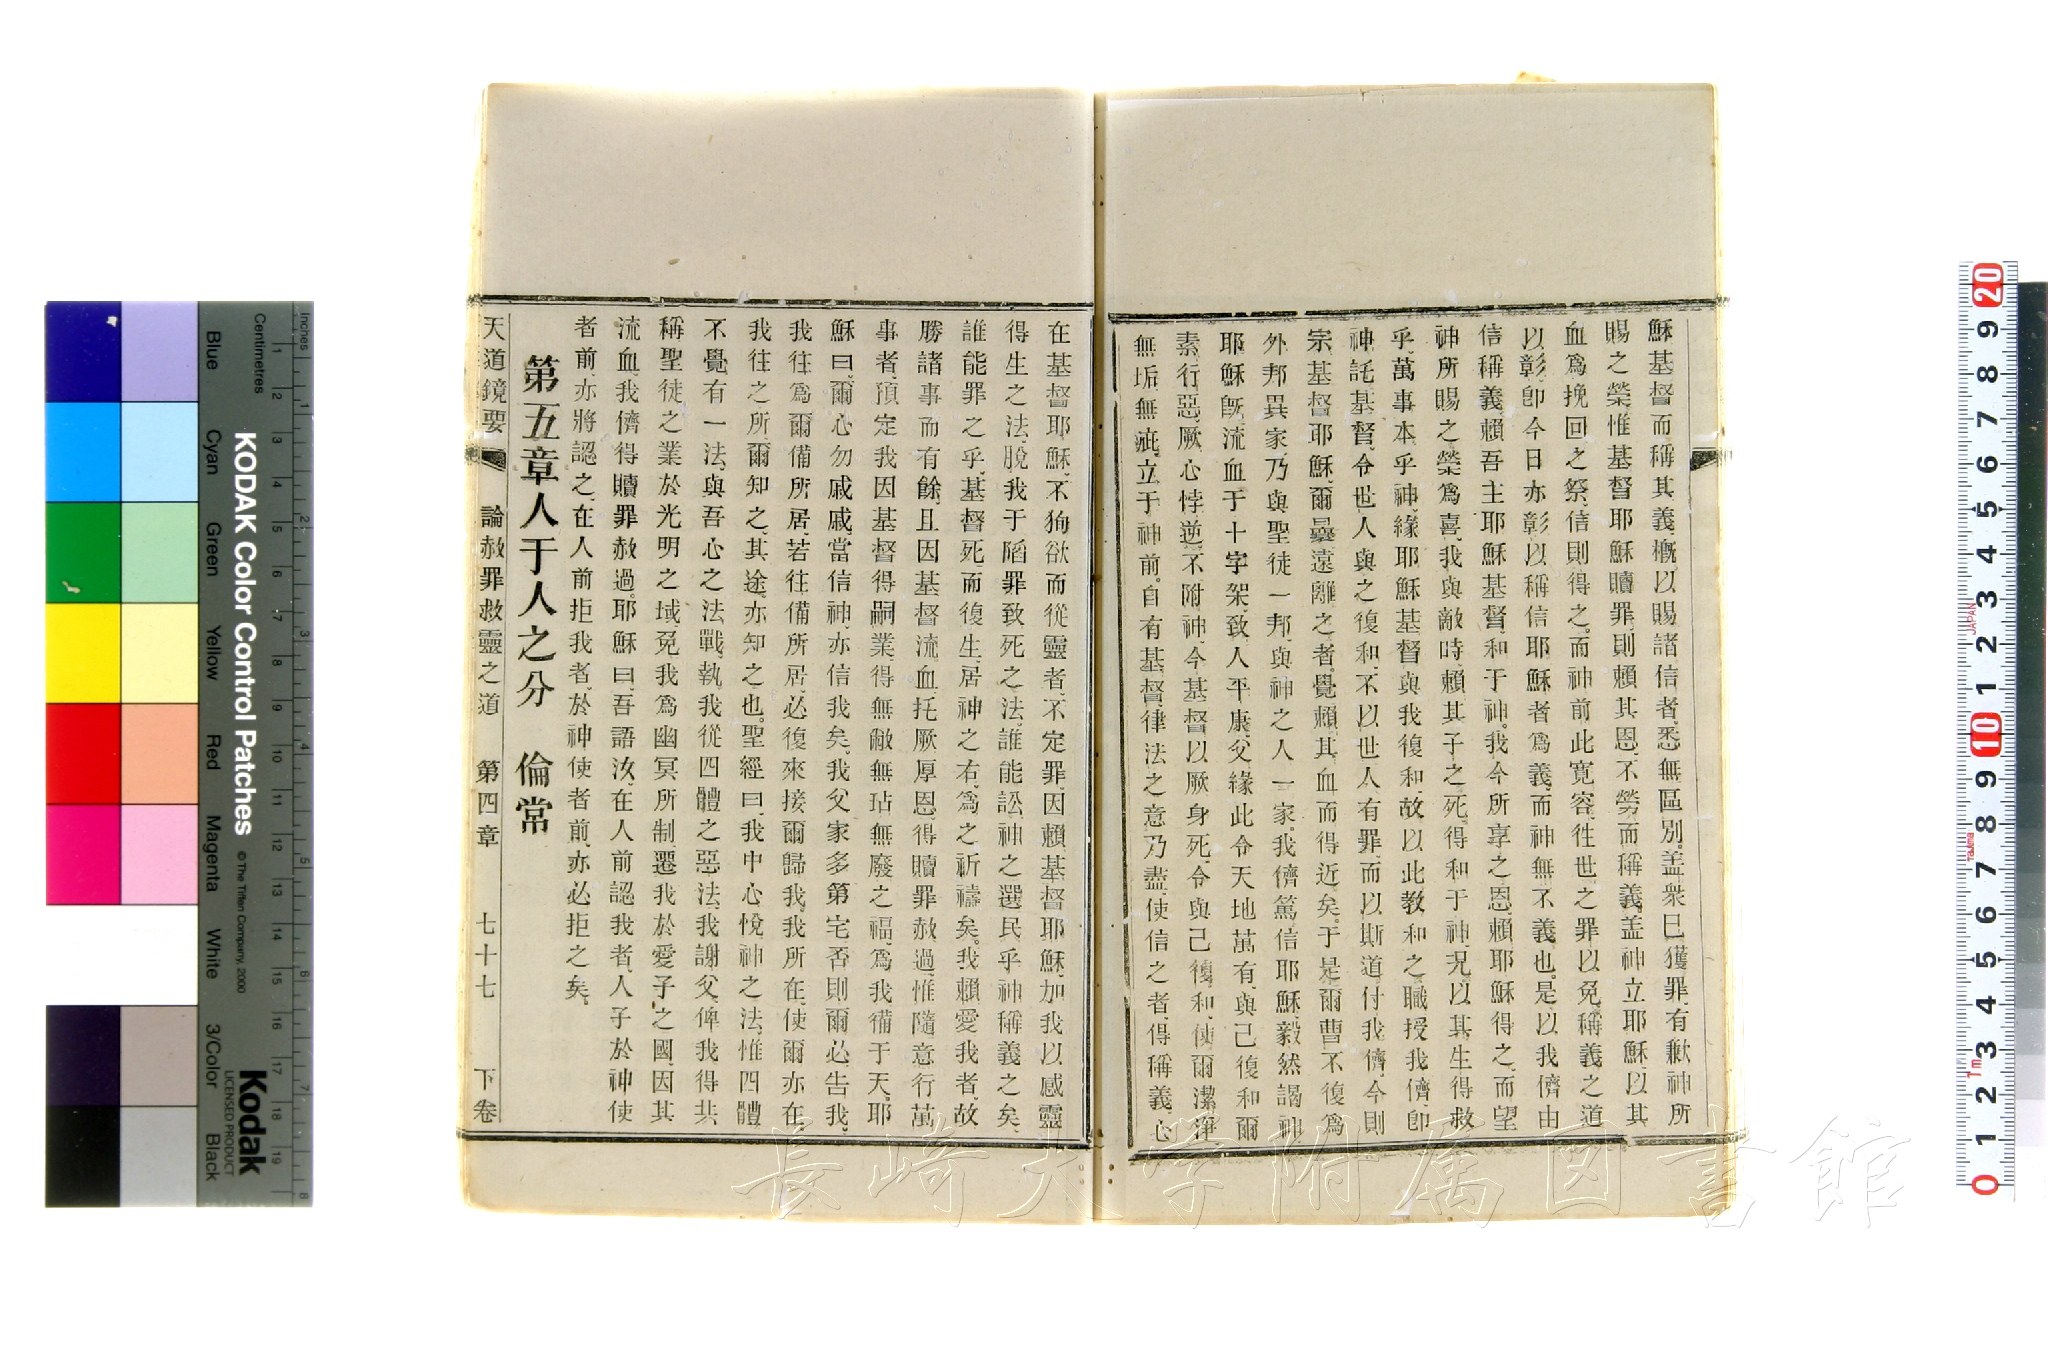 穌基督而稱其義、概以賜諸信者、悉無區別、蓋衆已獲罪、有歉神所
賜之榮、惟基督耶穌贖罪、則賴其恩、不勞而稱義、蓋神立耶穌、以其
血爲挽回之祭、信則得之、而神前此寬容、往世之罪以免、稱義之道
以彰、卽今日亦彰、以稱信耶穌者爲義、而神無不義也。是以我儕由
信稱義、賴吾主耶穌基督、和于神。我今所享之恩、賴耶穌得之、而望
神所賜之榮爲喜、我與敵時、賴其子之死、得和于神、況以其生得救
乎、萬事本乎神、緣耶穌基督與我復和、故以此教和之職授我儕、卽
神託基督、令世人與之復和、不以世人有罪、而以斯道付我儕、今則
宗基督耶穌、爾曩遠離之者、覺賴其血而得近矣。于是爾曹不復爲
外邦異家、乃與聖徒一邦、與神之人一家。我儕篤信耶穌、毅然謁神、
耶穌旣流血于十字架、致人平康、父緣此令天地萬有、與己復和、爾
素行惡、厥心悖逆、不附神、今基督以厥身死、令與己復和、使爾潔淨、
無垢無疵、立于神前。自有基督律法之意乃盡、使信之者、得稱義、心
在基督耶穌、不狥欲而從靈者、不定罪、因賴基督耶穌、加我以感靈
得生之法、脫我于陷罪致死之法、誰能訟神之選民乎、神稱義之矣、
誰能罪之乎、基督死而復生、居神之右、爲之祈禱矣。我賴愛我者、故
勝諸事而有餘、且因基督流血、托厥厚恩、得贖罪赦過、惟隨意行萬
事者、預定我因基督得嗣業、得無敝無玷無廢之福、爲我備于天、耶
穌曰、爾心勿戚戚、當信神、亦信我矣、我父家多第宅、否則爾必告我、
我往、爲爾備所居、若往備所居、必復來接爾歸我、我所在、使爾亦在、
我往之所爾知之、其途、亦知之也。聖經曰、我中心悅神之法、惟四體
不覺有一法、與吾心之法戰、執我從四體之惡法、我謝父、俾我得共
稱聖徒之業、於光明之域、免我爲幽冥所制、遷我於愛子之國、因其
流血、我儕得贖罪赦過。耶穌曰、吾語汝、在人前認我者、人子於神使
者前、亦將認之、在人前拒我者、於神使者前、亦必拒之矣。
第五章人于人之分　倫常
天道鏡要　論赦罪救靈之道　第四章　七十七　下卷
KODAK Color Control Patches
© The Tiffen Company, 2000
Kodak
LICENSED PRODUCT
Inches
Centimetres
Blue
Cyan
Green
Yellow
Red
Magenta
White
3/Color
Black
JAPAN
長崎大学附属図書館